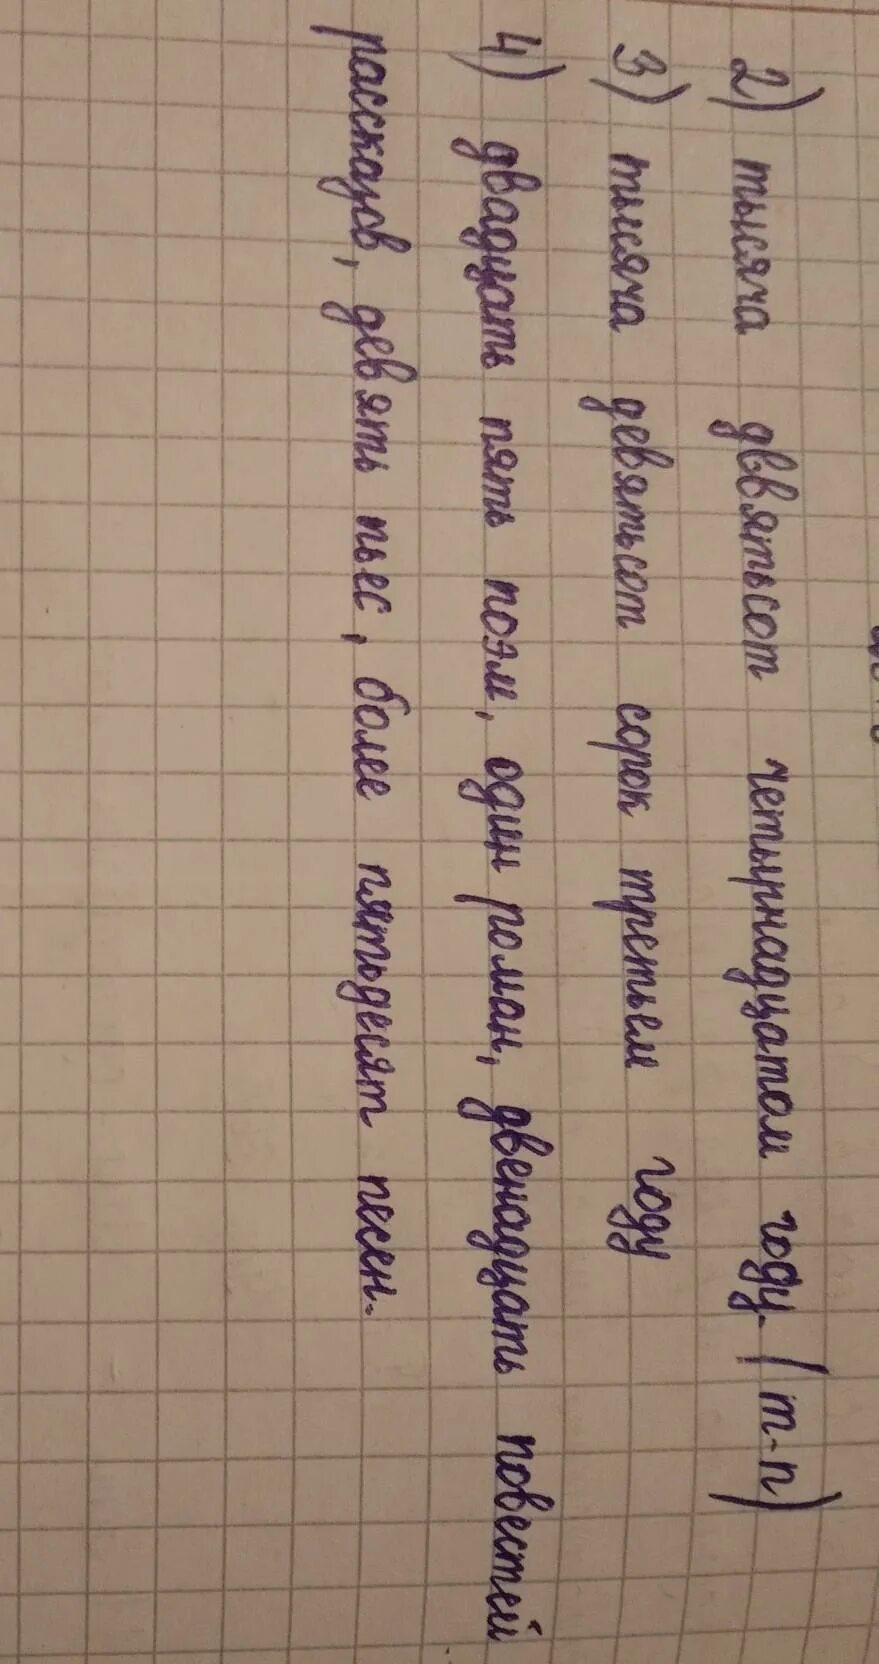 2) тысяча дввятьсот четырнадцатом году. (т-п)
3) тысяча девятьсот сорок третьем году
4) двадцать пять поэм, один роман, двенадцать повестей
рассказов, девять пьес, более пятьдесят песен.